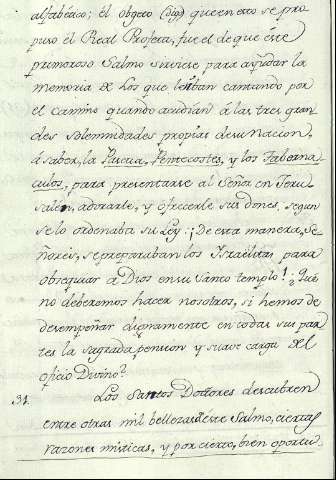 alfabéaco; él obgeto que en esto se pro-
puso el Real Profeta, fue el de que este
primoroso Salmo sirviese, para ayudar la
memoria de los que le iban cantando por
el camino quando acudian á las tres gran
des solemnidades propias de su Nacion,
á saber, la Pascua, Pentecostes, y los Taberna
culos, para presentarse al Señor en Jeru
salen, adorarle, y ofrecerle sus dones, segun
se lo ordenaba su Ley: ¡De esta manera, Se
ñores, se preparaban los Israëlitas para
obsequiar a Dios en su santo templo! ¿Qué
no deberemos hacer nosotros, si hemos de
desempeñar dignamente en todas sus par
tes la sagrada pension y suave carga del
oficio Divino?
31. Los Santos Doctores descubren
entre otras mil bellezas de este Salmo, ciertas
razones misticas, y por cierto, bien oportu-